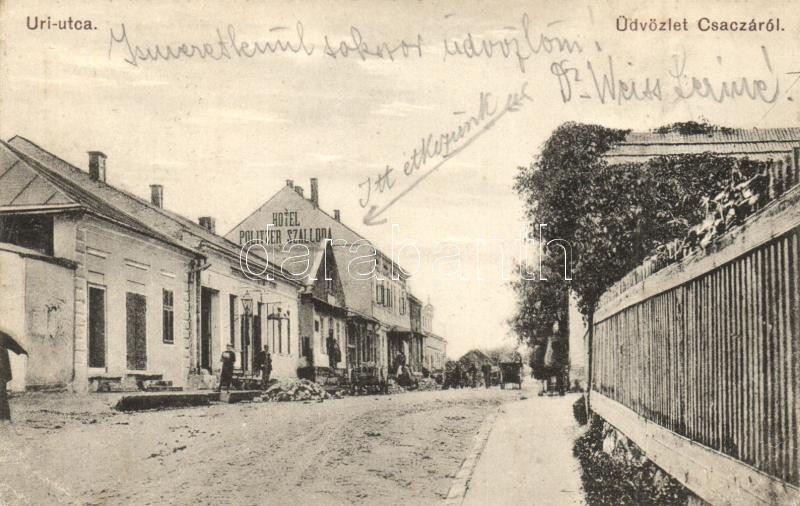 Uri-utca.
Üdvözlet Csaczáról.
Ismeretlenül sokszor üdvözlöm!
Dr Weiss
Itt étkezünk
HOTEL
POLITZER SZÁLLODA
darabanth